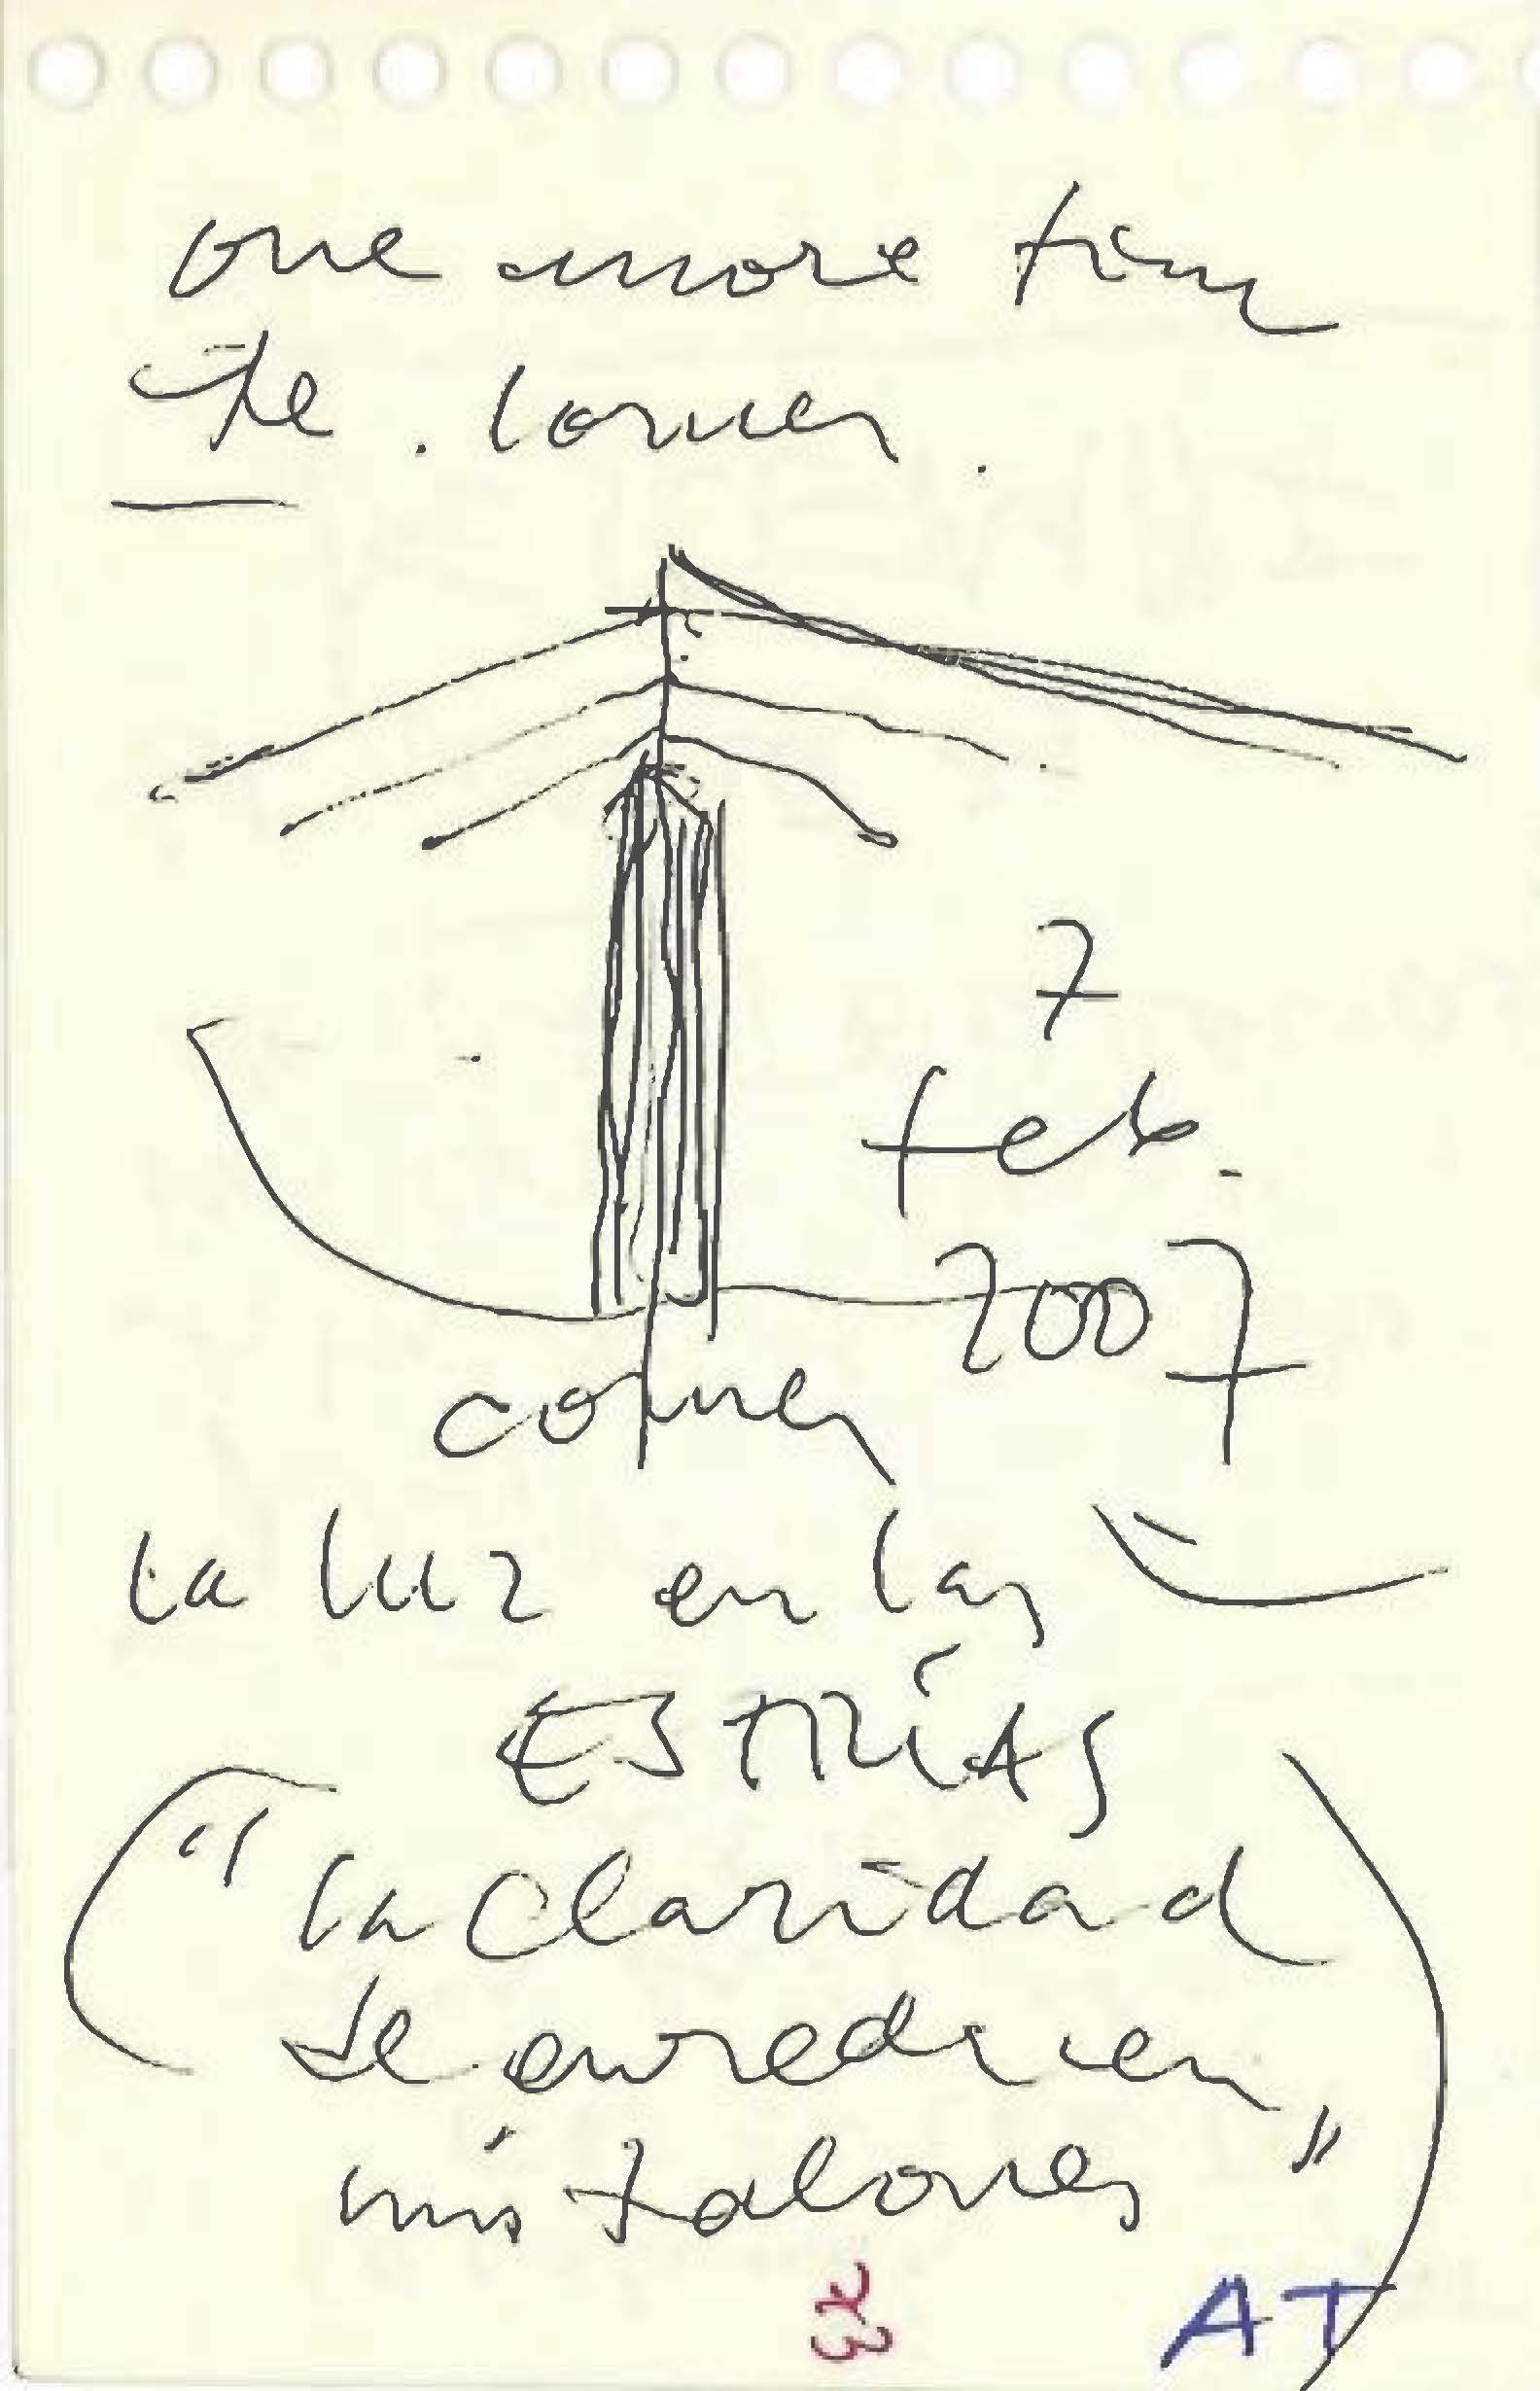 one more time
the
7
feb.
2007
la luz en las
ESTRÍAS
("la claridad
se enreda en
mis talones")
23
AT